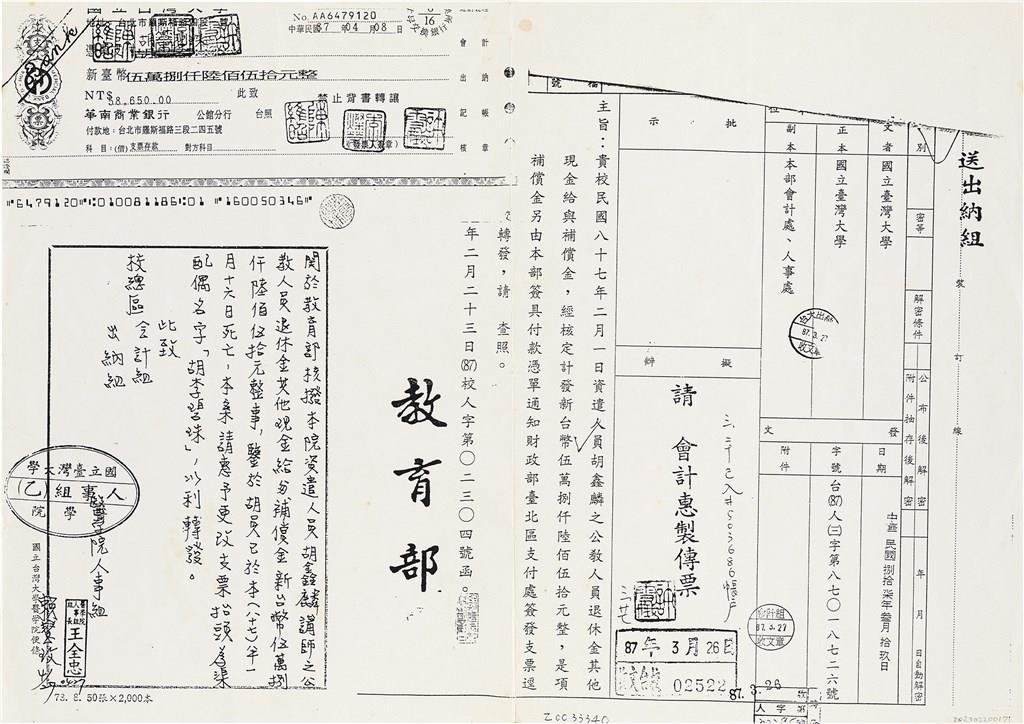 國立台灣大學
No. AA6479120
中華民國 87年 04月 08日
新臺幣伍萬捌仟陸佰伍拾元整
NT$ 58,650.00
此致
禁止背書轉讓
華南商業銀行 公館分行 台照
付款地：台北市羅斯福路三段二四五號
科目：(借)支票存款 對方科目
(發票人簽章)
會計
出納
記帳
核章
⑈6479120⑈⑆010081186⑆01 ⑈160050346⑈
送出納組
裝訂線
檔號
批示
擬辦
別
密等
解密條件
公布後解密
附件抽存後解密
年月日自動解密
文者 國立臺灣大學
正本 國立臺灣大學
副本 本部會計處、人事處
發文
日期 中華民國捌拾柒年叁月拾玖日
字號 台(87)人(三)字第八七〇一八七二六號
附件
台大出納
87.3.27
收文章
會計組
87.3.27
收文章
請
會計惠製傳票
三.二六已入#5036868帳戶
87年 3月 26日
02522
87.3.26
主旨：貴校民國八十七年二月一日資遣人員胡鑫麟之公教人員退休金其他
現金給與補償金，經核定計發新台幣伍萬捌仟陸佰伍拾元整，是項
補償金另由本部簽具付款憑單通知財政部臺北區支付處簽發支票逕
轉發，請 查照。
年二月二十三日(87)校人字第〇二三〇四號函。
教育部
關於教育部核撥本院資遣人員胡鑫麟講師之公
教人員退休金其他現金給與補償金新台幣伍萬捌
仟陸佰伍拾元整事，鑒於胡員已於本(八十七)年一
月十六日死亡，本案請惠予更改支票抬頭為渠
配偶名字「胡李碧珠」，以利轉發。
此致
校總區 會計組
出納組
醫學院人事組
國立臺灣大學
人事組(乙)
醫學院
醫學院人事組組長
王全忠
國立台灣大學醫學院便條
73. 8. 50張×2,000本
ZCC33340